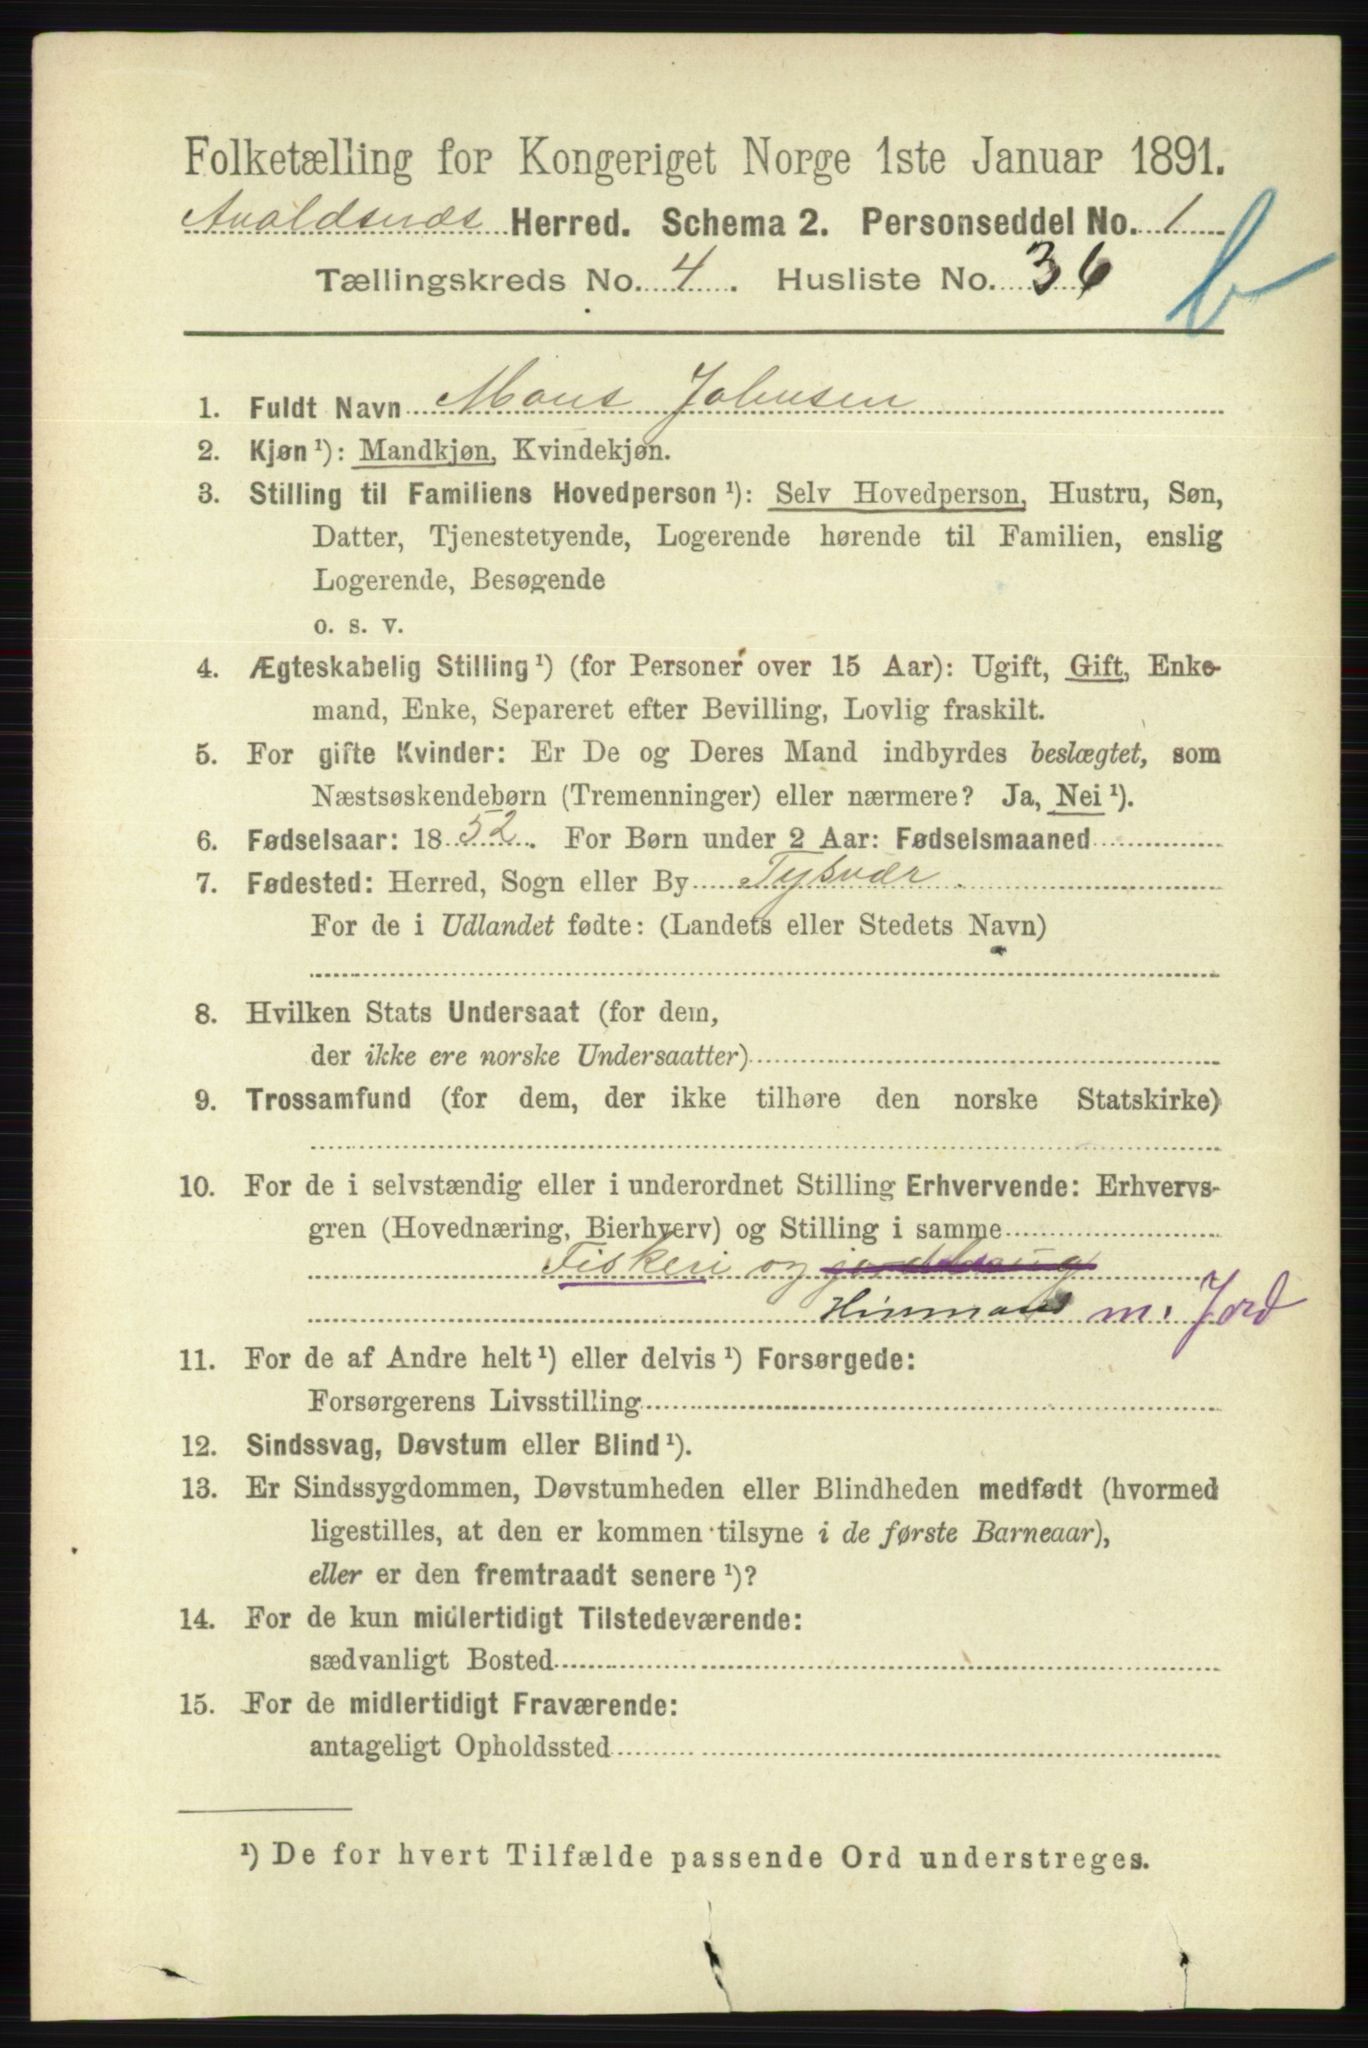 Folketælling for Kongeriget Norge 1ste Januar 1891.
Avaldsnæs Herred. Schema 2. Personseddel No. 1
Tællingskreds No. 4. Husliste No. 36 b
1. Fuldt Navn Mons Johnsen
2. Kjøn ¹): Mandkjøn, Kvindekjøn.
3. Stilling til Familiens Hovedperson ¹): Selv Hovedperson, Hustru, Søn,
Datter, Tjenestetyende, Logerende hørende til Familien, enslig
Logerende, Besøgende
o. s. v.
4. Ægteskabelig Stilling ¹) (for Personer over 15 Aar): Ugift, Gift, Enke-
mand, Enke, Separeret efter Bevilling, Lovlig fraskilt.
5. For gifte Kvinder: Er De og Deres Mand indbyrdes beslægtet, som
Næstsøskendebørn (Tremenninger) eller nærmere? Ja, Nei ¹).
6. Fødselsaar: 1852. For Børn under 2 Aar: Fødselsmaaned
7. Fødested: Herred, Sogn eller By Tysvær.
For de i Udlandet fødte: (Landets eller Stedets Navn)
8. Hvilken Stats Undersaat (for dem,
der ikke ere norske Undersaatter)
9. Trossamfund (for dem, der ikke tilhøre den norske Statskirke)
10. For de i selvstændig eller i underordnet Stilling Erhvervende: Erhvervs-
gren (Hovednæring, Bierhverv) og Stilling i samme
Fiskeri og jordbrug
Husmand m. Jord
11. For de af Andre helt ¹) eller delvis ¹) Forsørgede:
Forsørgerens Livsstilling
12. Sindssvag, Døvstum eller Blind ¹).
13. Er Sindssygdommen, Døvstumheden eller Blindheden medfødt (hvormed
ligestilles, at den er kommen tilsyne i de første Barneaar),
eller er den fremtraadt senere ¹)?
14. For de kun midlertidigt Tilstedeværende:
sædvanligt Bosted
15. For de midlertidigt Fraværende:
antageligt Opholdssted
¹) De for hvert Tilfælde passende Ord understreges.